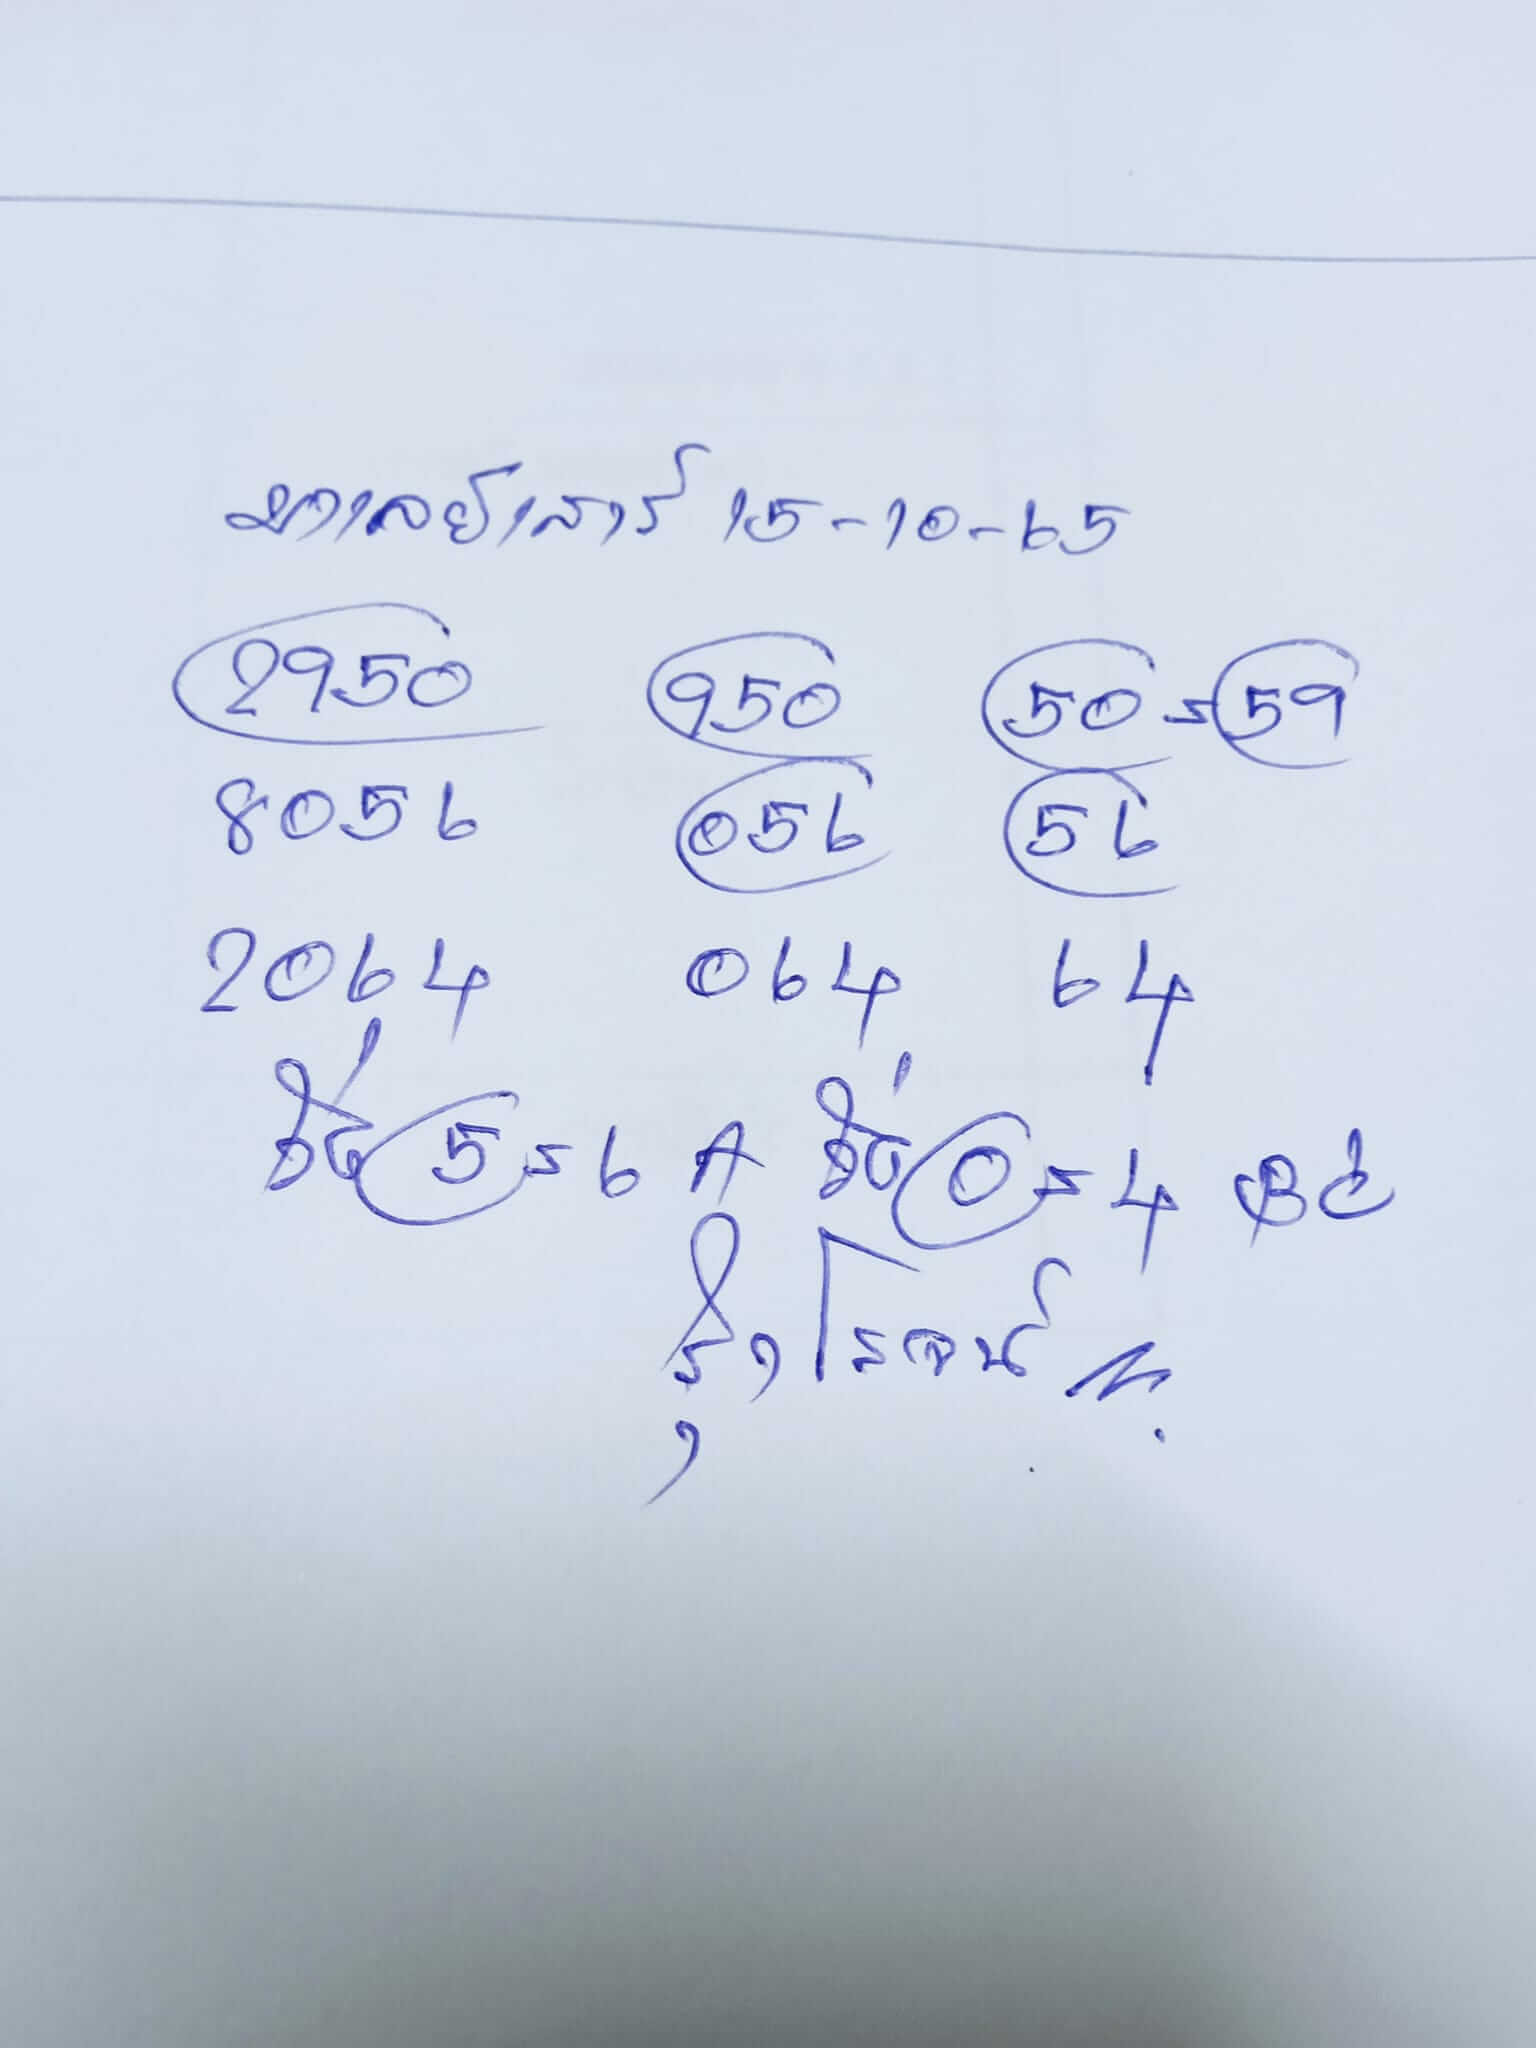 มาเลย์เสาร์ 15-10-65
2950 950 50 - 59
8056 056 56
2064 064 64
5 = 6 A 0 = 4
โรจน์ N.